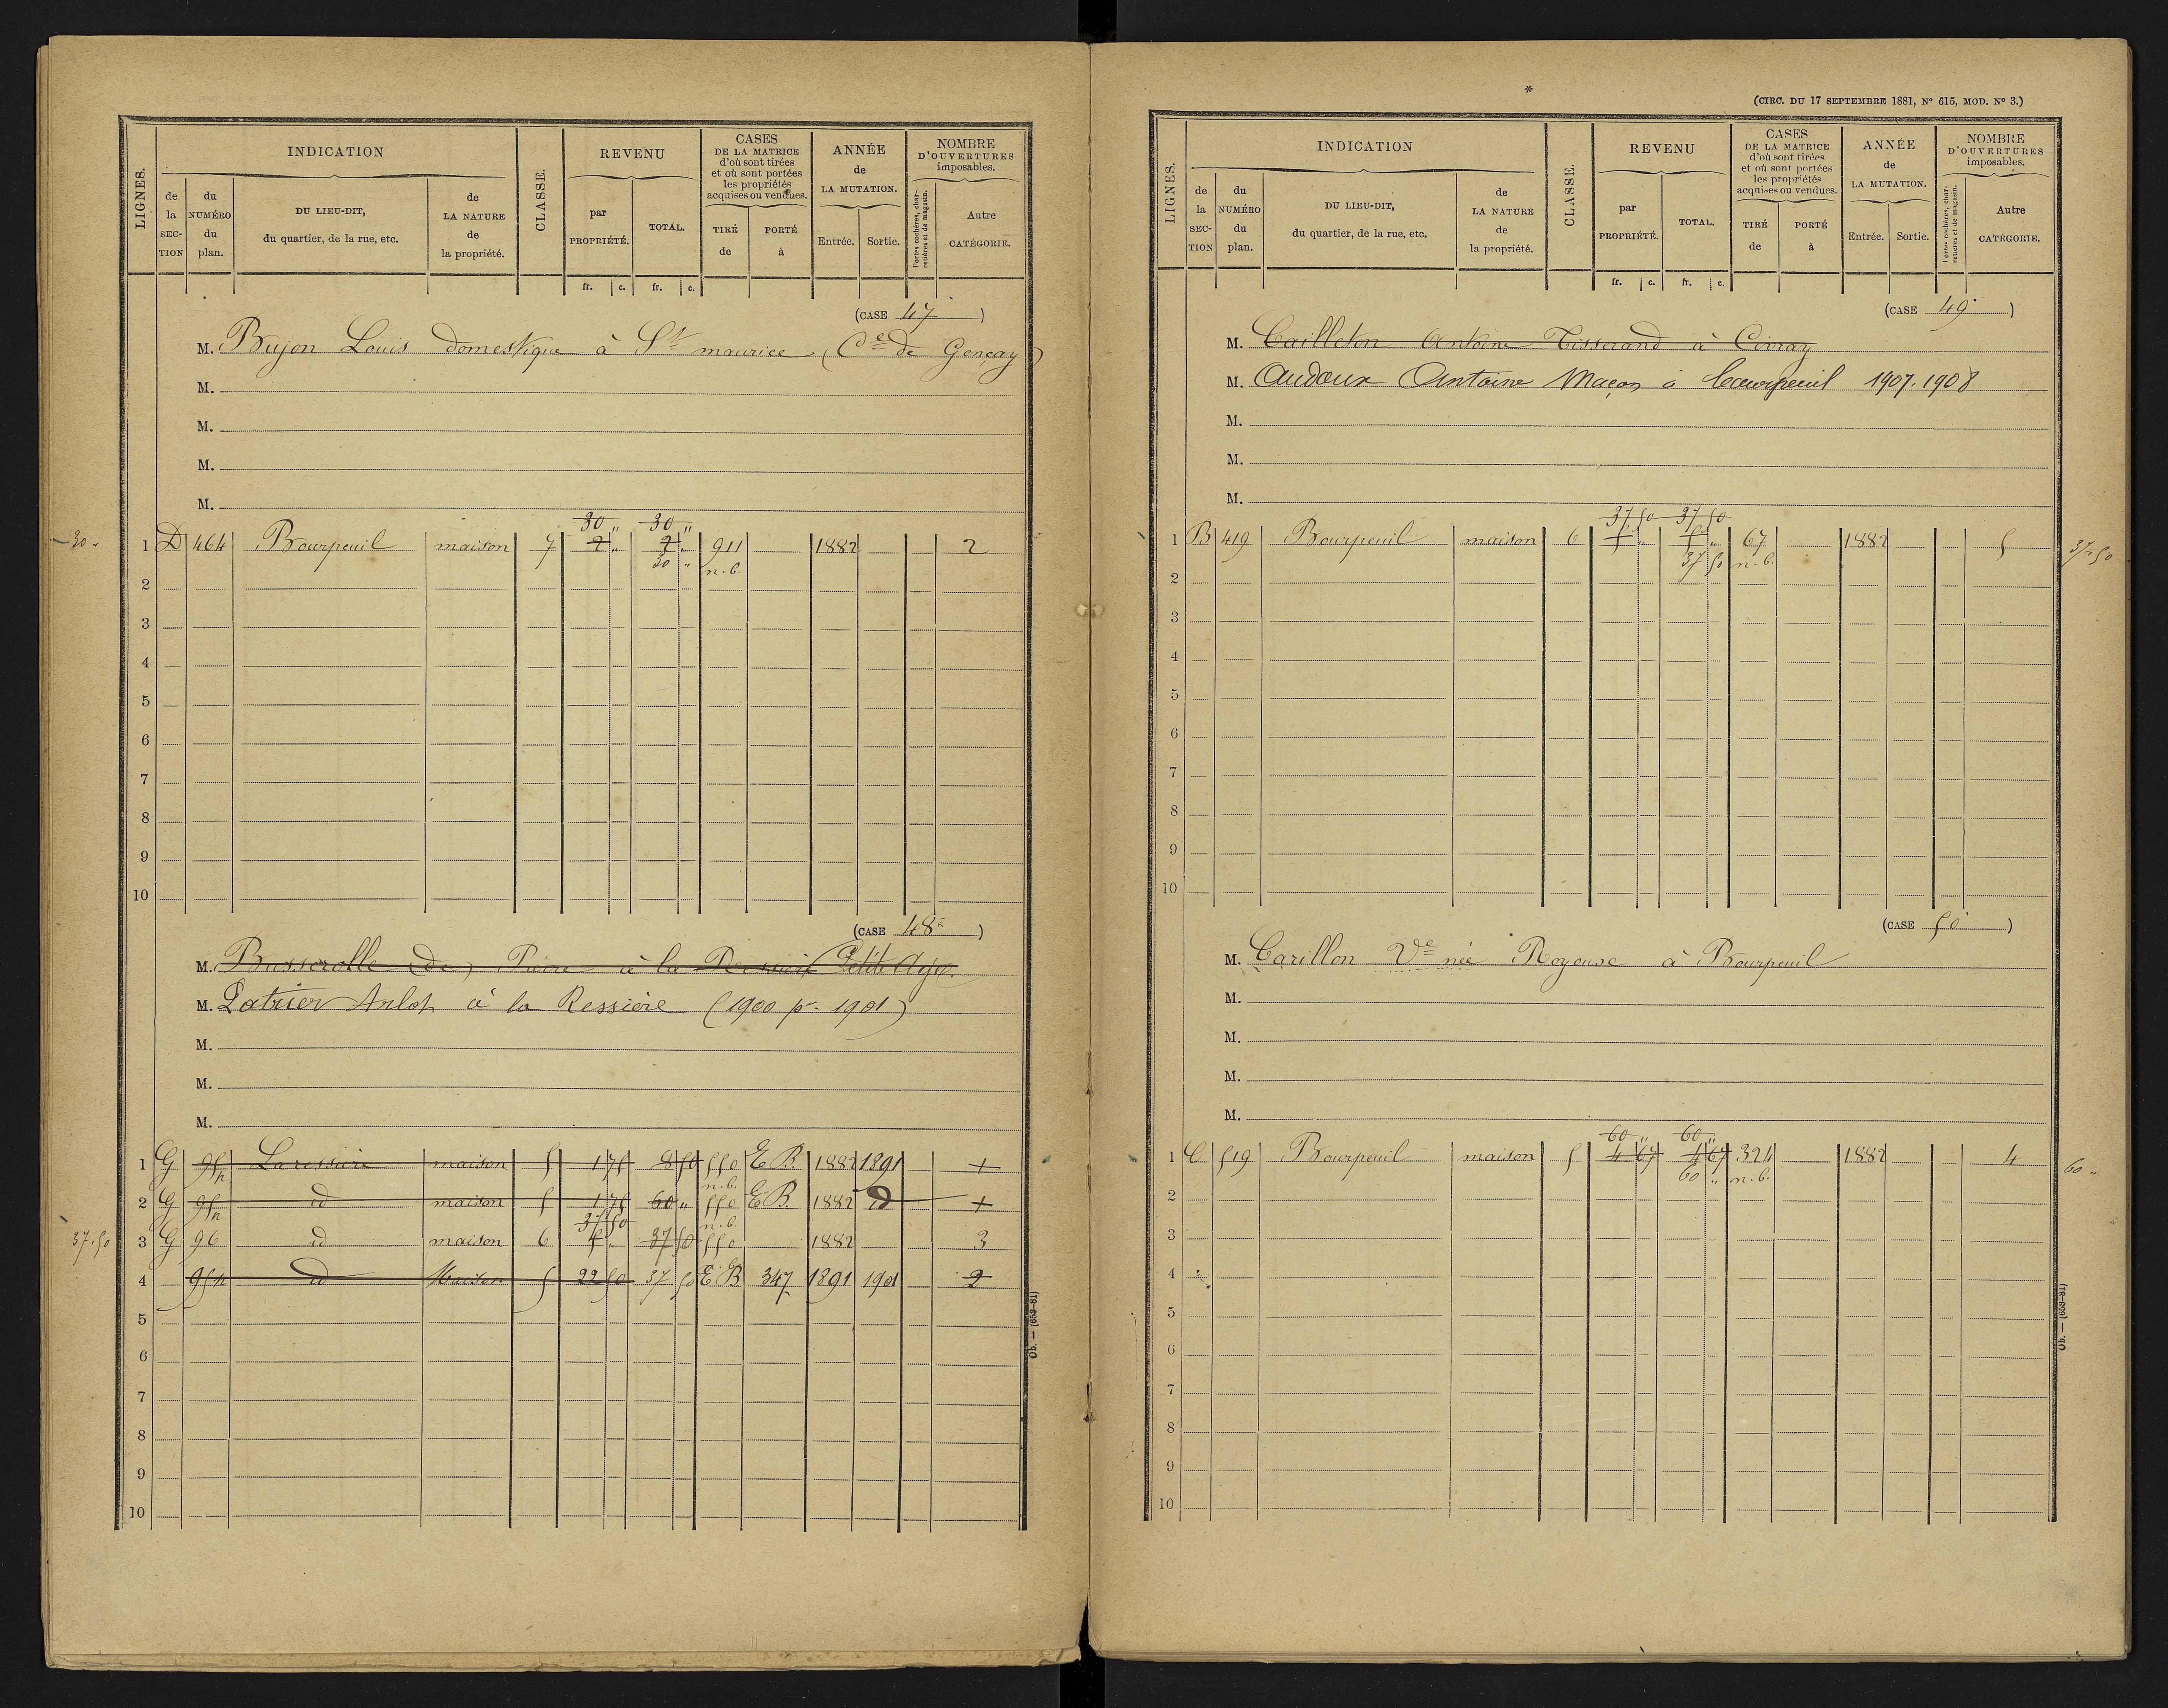 LIGNES.
INDICATION
CLASSE.
REVENU
CASES
DE LA MATRICE
d'où sont tirées
et où sont portées
les propriétés
acquises ou vendues.
ANNÉE
de
LA MUTATION.
NOMBRE
D'OUVERTURES
imposables.
de la SECTION
du NUMÉRO du plan.
DU LIEU-DIT,
du quartier, de la rue, etc.
de LA NATURE de la propriété.
par PROPRIÉTÉ.
TOTAL.
TIRÉ de
PORTÉ à
Entrée.
Sortie.
Portes cochères, charretières et de magasin.
Autre CATÉGORIE.
fr. c. fr. c.
(CASE 47 )
M. Bujon Louis domestique à St maurice (Ce de Gençay)
M.
M.
M.
M.
30 " 30 "
30 "
1 D 464 Bourpeuil maison 7 2 " 2 " 911 1882 2
30 " n.b.
2
3
4
5
6
7
8
9
10
(CASE 48 )
M. Busserolle (de) à la Petite
M. Latrier Anlot à la Ressière (1900 pr 1901)
M.
M.
M.
1 G 95p La ressière maison 5 1 75 8 50 550 E B. 1882 1891 +
n.b.
2 G 95p id maison 5 1 75 60 " 550 E B. 1882 d +
37 50 n.b.
37.50
3 G 96 id maison 6 37 50 550 1882 3
4 95p id Maison 5 22 50 37 50 E B 347 1891 1901 2
5
6
7
8
9
10
Ob. — (653-81)
*
(CIRC. DU 17 SEPTEMBRE 1881, No 615, MOD. No 3.)
LIGNES.
INDICATION
CLASSE.
REVENU
CASES
DE LA MATRICE
d'où sont tirées
et où sont portées
les propriétés
acquises ou vendues.
ANNÉE
de
LA MUTATION.
NOMBRE
D'OUVERTURES
imposables.
de la SECTION
du NUMÉRO du plan.
DU LIEU-DIT,
du quartier, de la rue, etc.
de LA NATURE de la propriété.
par PROPRIÉTÉ.
TOTAL.
TIRÉ de
PORTÉ à
Entrée.
Sortie.
Portes cochères, charretières et de magasin.
Autre CATÉGORIE.
fr. c. fr. c.
(CASE 49 )
M. Cailleton Antoine Tisserand à Civray
M. Audoux Antoine Maçon à Bourpeuil 1907.1908
M.
M.
M.
37 50 37 50
1 B 419 Bourpeuil maison 6 5 " 5 " 67 1882 5
37.50
37 50 n.b.
2
3
4
5
6
7
8
9
10
(CASE 50 )
M. Carillon Ve née Royouse à Bourpeuil
M.
M.
M.
M.
60 " 60 "
1 C 519 Bourpeuil maison 5 4 67 4 67 324 1882 4
60 "
60 " n.b.
2
3
4
5
6
7
8
9
10
Ob. — (653-81)